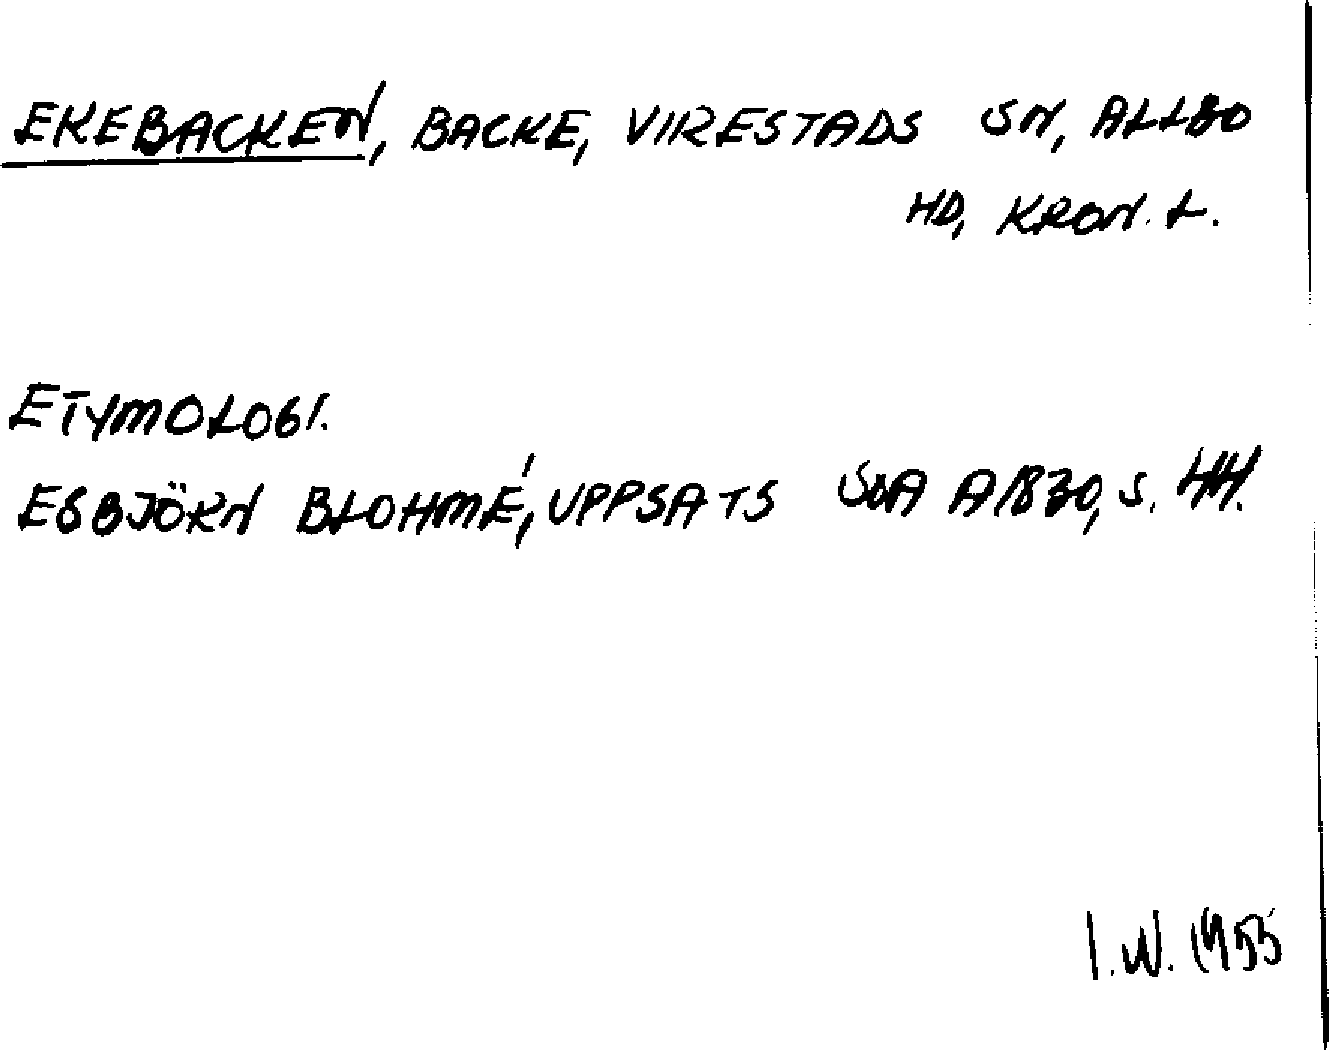 EKEBACKEN, BACKE, VIRESTADS SN, ALLBO
HD, KRON. L.
ETYMOLOGI.
ESBJÖRN BLOHMÉ, UPPSATS SOA A1830, S. 44.
I.W. 1955